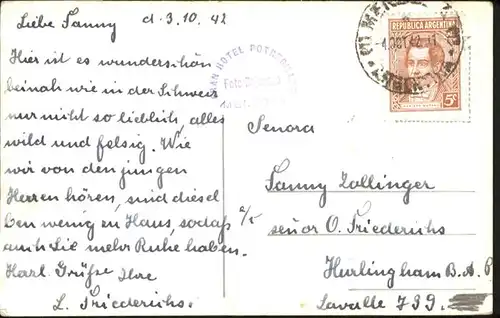 Liebe Fanny d. 3.10.42
Hier ist es wunderschön
beinah wie in der Schweiz
nur nicht so lieblich, alles
wild und felsig. Wie
wir von den jungen
Herren hören, sind diesel
ben wenig zu Haus, sodaß
auch Sie mehr Ruhe haben.
Herzl. Grüße Ihre
L. Friederichs.
GRAN HOTEL
REPUBLICA ARGENTINA
5c
Senora
Fanny Zollinger
señor O. Friederichs
Hurlingham B.A.
Lavalle 739.